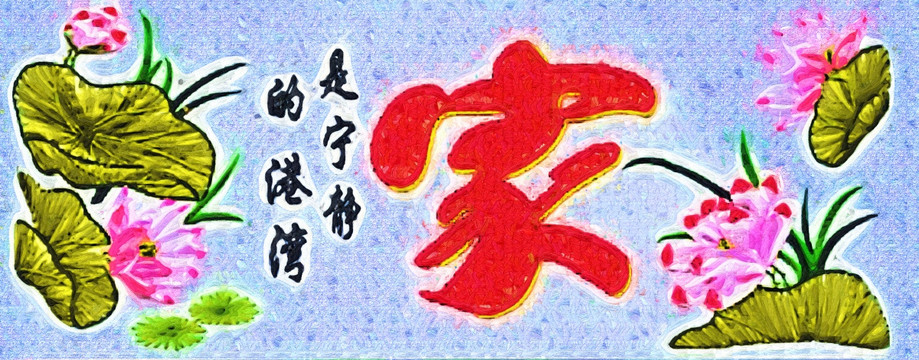 家
是宁静
的港湾